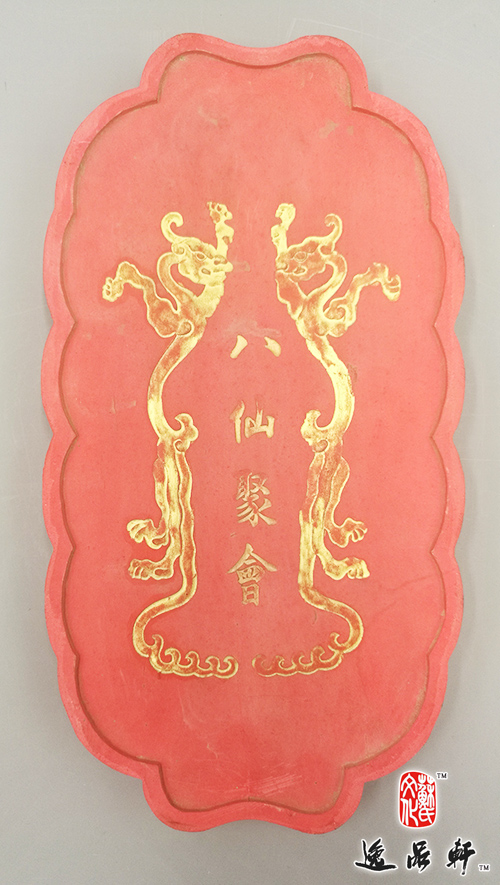 八仙聚會
蘇氏文化
TM
逸品軒
TM